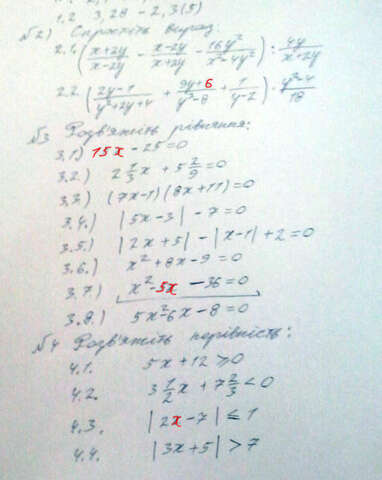 1.2 3,28 - 2,3(5)
№2) Спростіть вираз
2.1. ((x+2y)/(x-2y) - (x-2y)/(x+2y) - 16y²/(x²-4y²)) : 4y/(x+2y)
2.2. ((2y-1)/(y²+2y+4) + (9y+6)/(y³-8) + 1/(y-2)) · (y²-4)/18
№3 Розв'яжіть рівняння:
3.1) 15x - 25=0
3.2.) 2 1/3 x + 5 2/9 = 0
3.3) (7x-1)(8x+11)=0
3.4.) |5x-3| - 7=0
3.5.) |2x+5| - |x-1| + 2=0
3.6.) x²+8x-9=0
3.7.) x²-5x -36=0
3.8.) 5x²-6x-8=0
№4 Розв'яжіть нерівність:
4.1. 5x+12 ≥0
4.2. 3 1/2 x + 7 2/3 <0
4.3. |2x-7| ≤ 1
4.4. |3x+5| > 7